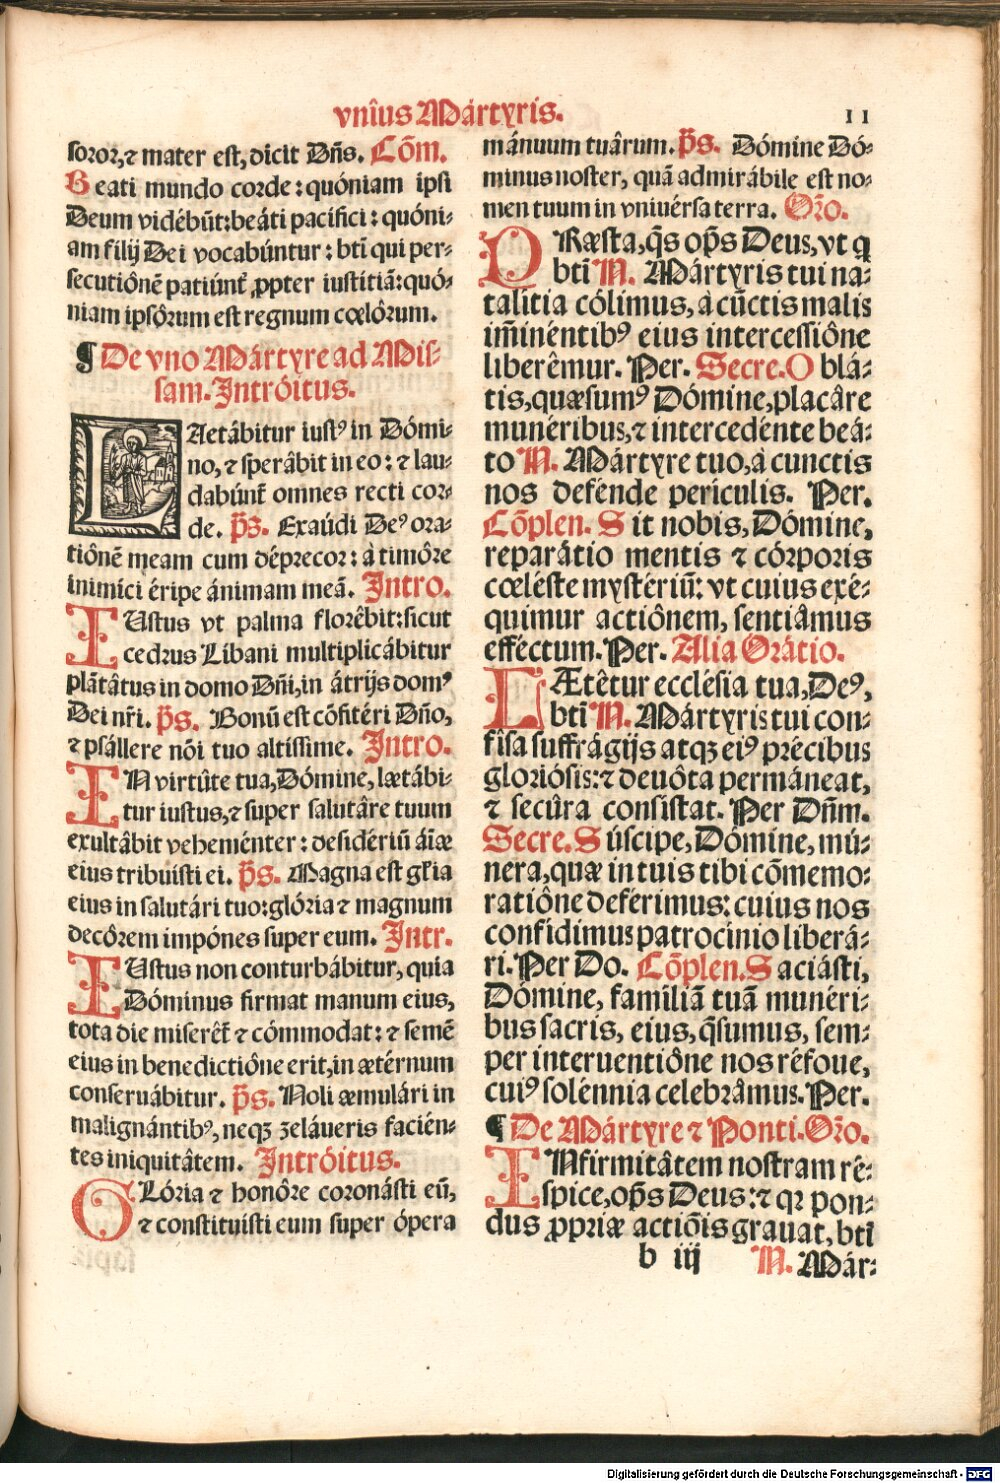 vnîus Mártyris.
11
soror, ⁊ mater est, dicit Dñs. Cõm.
Beati mundo corde: quóniam ipsi
Deum vidébũt: beáti pacifici: quóni⸗
am filij Dei vocabúntur: bti̅ qui per⸗
secutiônẽ patiúnt᷑ ꝓpter iustitiã: quó⸗
niam ipsôrum est regnum cœlôrum.
¶ De vno Mártyre ad Mis⸗
sam. Intróitus.
LAetâbitur iustꝰ in Dómi⸗
no, ⁊ sperâbit in eo: ⁊ lau⸗
dabúnt᷑ omnes recti cor⸗
de. p̃ꝫ. Exaúdi Deꝰ ora⸗
tiônẽ meam cum déprecor: à timôre
inimíci éripe ánimam meã. Intro.
IUstus vt palma florêbit: sicut
cedrus Libani multiplicâbitur
plãtâtus in domo Dñi, in átrijs domꝰ
Dei nr̃i. p̃s. Bonũ est cõfitéri Dño,
⁊ psállere nõi tuo altissime. Intro.
IN virtûte tua, Dómine, lætâbi⸗
tur iustus, ⁊ super salutâre tuum
exultâbit veheménter: desidériũ aĩæ
eius tribuisti ei. p̃s. Magna est gl̃ia
eius in salutári tuo: glória ⁊ magnum
decôrem impónes super eum. Intr.
IUstus non conturbábitur, quia
Dóminus firmat manum eius,
tota die miserêt᷑ ⁊ cómmodat: ⁊ semẽ
eius in benedictiône erit, in ætérnum
conseruábitur. p̃s. Noli æmulári in
malignántibꝰ, neqꝫ zeláueris facién⸗
tes iniquitâtem. Intróitus.
GLória ⁊ honôre coronásti eũ,
⁊ constituísti eum super ópera
mánuum tuârum. p̃s. Dómine Dó⸗
minus noster, quã admirábile est no⸗
men tuum in vniuérsa terra. Or̃o.
PRæsta, q̃s op̃s Deus, vt q
bti̅ N. Mártyris tui na⸗
talítia cólimus, à cũctis malis
im̃inéntibꝰ eius intercessiône
liberêmur. Per. Secre. O blá⸗
tis, quæsumꝰ Dómine, placâre
munéribus, ⁊ intercedénte beá⸗
to N. Mártyre tuo, à cunctis
nos defénde perículis. Per.
Cõplen. S it nobis, Dómine,
reparátio mentis ⁊ córporis
cœléste mystériũ: vt cuius exé⸗
quimur actiônem, sentiâmus
efféctum. Per. Alia Orátio.
LÆtêtur ecclésia tua, Deꝰ,
bti̅ N. Mártyris tui con⸗
físa suffrágijs atqꝫ eiꝰ précibus
gloriósis: ⁊ deuôta permáneat,
⁊ secûra consístat. Per Dñm.
Secre. S úscipe, Dómine, mú⸗
nera, quæ in tuis tibi cõmemo⸗
ratiône deférimus: cuius nos
confídimus patrocínio liberá⸗
ri. Per Do. Cõplen. S aciásti,
Dómine, famíliã tuã munéri⸗
bus sacris, eius, q̃sumus, sem⸗
per interuentiône nos réfoue,
cuiꝰ solénnia celebrâmus. Per.
¶ De Mártyre ⁊ Ponti. Or̃o.
INfirmitâtem nostram ré⸗
spice, op̃s Deus: ⁊ qr pon⸗
dus ꝓpriæ actiõis grauat, bti̅
b iij
N. Már⸗
Digitalisierung gefördert durch die Deutsche Forschungsgemeinschaft - DFG